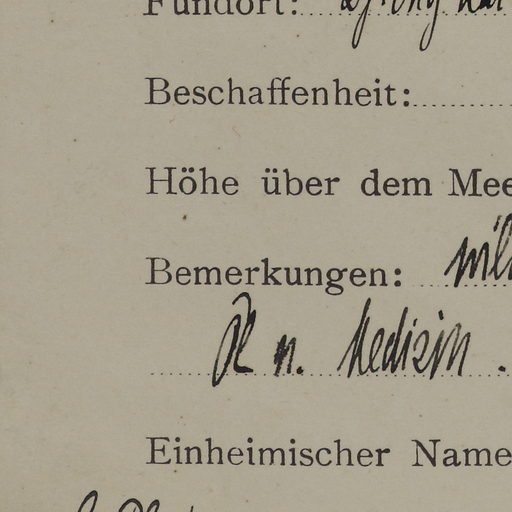 Fundort:
Beschaffenheit:
Höhe über dem Mee
Bemerkungen:
n. Medizin.
Einheimischer Name